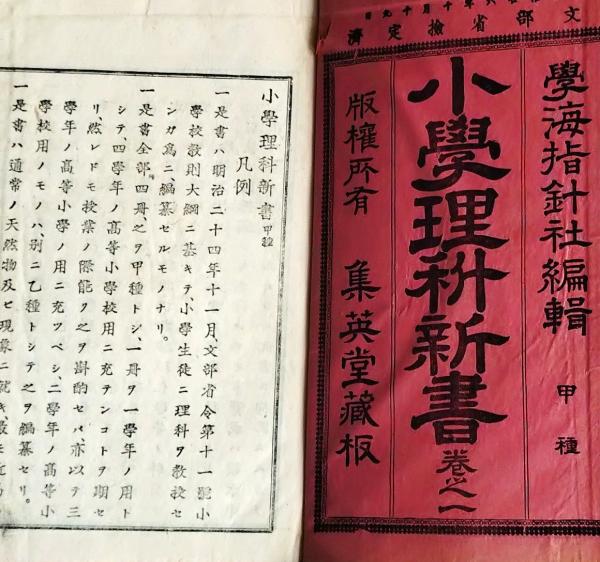 文部省檢定濟
學海指針社編輯 甲種
小學理科新書 卷之一
版權所有 集英堂藏板
小學理科新書 甲種
凡例
一是書ハ明治二十四年十一月文部省令第十一號小
學校敎則大綱ニ基キテ、小學生徒ニ理科ヲ敎授セ
ンガ爲ニ編纂セルモノナリ。
一是書全部四冊之ヲ甲種トシ、一冊ヲ一學年ノ用ト
シテ、四學年ノ高等小學校用ニ充テンコトヲ期セ
リ、然レドモ授業ノ際能ク之ヲ斟酌セバ、亦以テ三
學年ノ高等小學ノ用ニ充ツベシ、二學年ノ高等小
學校用ノモノハ、別ニ乙種トシテ之ヲ編纂セリ。
一是書ハ通常ノ天然物及ビ現象ニ就キ、最モ